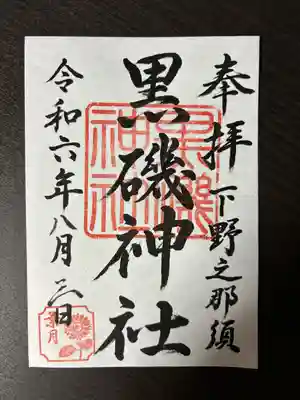 奉拝 下野之那須
黒磯神社
令和六年八月三日
葉月